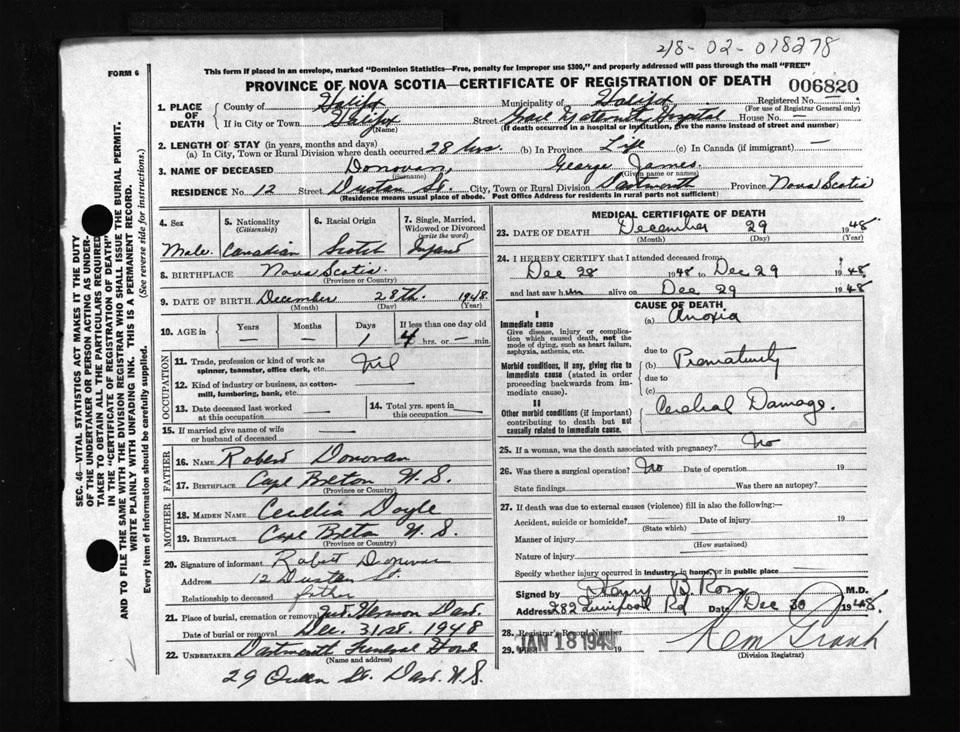 218-02-018278
FORM 6
This form if placed in an envelope, marked "Dominion Statistics—Free, penalty for improper use $300," and properly addressed will pass through the mail "FREE"
PROVINCE OF NOVA SCOTIA—CERTIFICATE OF REGISTRATION OF DEATH
006820
1. PLACE OF DEATH County of Halifax Municipality of Halifax Registered No. —
(For use of Registrar General only)
If in City or Town Halifax Street Grace Maternity Hospital House No. —
(Name) (If death occurred in a hospital or institution, give the name instead of street and number)
2. LENGTH OF STAY (in years, months and days)
(a) In City, Town or Rural Division where death occurred 28 hrs. (b) In Province Life (c) In Canada (if immigrant) —
3. NAME OF DECEASED Donovan, George James.
(Surname) (Given name or names)
RESIDENCE No. 12 Street Dustan St. City, Town or Rural Division Dartmouth Province Nova Scotia
(Residence means usual place of abode. Post Office Address for residents in rural parts not sufficient)
SEC. 46—VITAL STATISTICS ACT MAKES IT THE DUTY
OF THE UNDERTAKER OR PERSON ACTING AS UNDER-
TAKER TO OBTAIN ALL THE PARTICULARS REQUIRED
IN THE "CERTIFICATE OF REGISTRATION OF DEATH"
AND TO FILE THE SAME WITH THE DIVISION REGISTRAR WHO SHALL ISSUE THE BURIAL PERMIT.
WRITE PLAINLY WITH UNFADING INK. THIS IS A PERMANENT RECORD.
Every item of information should be carefully supplied. (See reverse side for instructions.)
4. Sex 5. Nationality (Citizenship) 6. Racial Origin 7. Single, Married, Widowed or Divorced (write the word)
Male. Canadian Scotch Infant
8. BIRTHPLACE Nova Scotia.
(Province or Country)
9. DATE OF BIRTH December 28th. 1948.
(Month) (Day) (Year)
10. AGE in Years Months Days If less than one day old
— — 1 4 hrs. or — min.
OCCUPATION
11. Trade, profession or kind of work as spinner, teamster, office clerk, etc. Nil
12. Kind of industry or business, as cotton-mill, lumbering, bank, etc.
13. Date deceased last worked at this occupation 14. Total yrs. spent in this occupation
15. If married give name of wife or husband of deceased
FATHER
16. NAME Robert Donovan
17. BIRTHPLACE Cape Breton N.S.
(Province or Country)
MOTHER
18. MAIDEN NAME Cecelia Doyle
19. BIRTHPLACE Cape Breton N.S.
(Province or Country)
20. Signature of informant Robert Donovan
Address 12 Dustan St.
Relationship to deceased father
21. Place of burial, cremation or removal Mt. Hermon Dart.
Date of burial or removal Dec. 31st. 1948
22. UNDERTAKER Dartmouth Funeral Home
(Name and address)
29 Queen St. Dart. N.S.
MEDICAL CERTIFICATE OF DEATH
23. DATE OF DEATH December 29 1948
(Month) (Day) (Year)
24. I HEREBY CERTIFY that I attended deceased from
Dec 28 1948 to Dec 29 1948
and last saw him alive on Dec 29 1948
CAUSE OF DEATH
I
Immediate cause (a) Anoxia
Give disease, injury or complication which caused death, not the mode of dying, such as heart failure, asphyxia, asthenia, etc.
due to
Morbid conditions, if any, giving rise to immediate cause (stated in order proceeding backwards from immediate cause). (b) Prematurity
due to
(c)
II
Other morbid conditions (if important) contributing to death but not causally related to immediate cause. Cerebral Damage.
25. If a woman, was the death associated with pregnancy? No
26. Was there a surgical operation? No Date of operation 19
State findings Was there an autopsy?
27. If death was due to external causes (violence) fill in also the following:—
Accident, suicide or homicide? Date of injury 19
(State which)
Manner of injury
(How sustained)
Nature of injury
Specify whether injury occurred in industry, in home, or in public place
Signed by Henry B. Ross M.D.
Address 282 Quinpool Rd Date Dec 30 1948.
28. Registrar's Record Number
29. Filed JAN 18 1949 19
(Division Registrar)